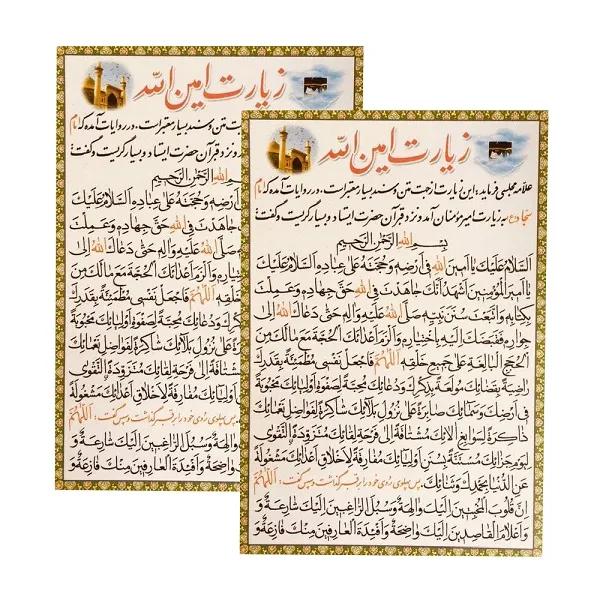 زیارت امین الله
متن و سند بسیار معتبر است، در روایات آمده که امام
و نزد قبر آن حضرت ایستاد و بسیار گریست و گفت:
زیارت امین الله
علامه مجلسی فرماید: این زیارت از جهت متن و سند بسیار معتبر است، در روایات آمده که امام
سجاد (ع) به زیارت امیرمؤمنان آمد و نزد قبر آن حضرت ایستاد و بسیار گریست و گفت:
بِسْمِ اللهِ الرَّحْمٰنِ الرَّحیمِ
اَلسَّلامُ عَلَیْكَ یا اَمینَ اللهِ فی اَرْضِهِ وَ حُجَّتَهُ عَلی عِبادِهِ اَلسَّلامُ عَلَیْكَ
یا اَمیرَ الْمُؤْمِنینَ اَشْهَدُ اَنَّكَ جاهَدْتَ فِی اللهِ حَقَّ جِهادِهِ وَ عَمِلْتَ
بِکِتابِهِ وَ اتَّبَعْتَ سُنَنَ نَبِیِّهِ صَلَّی اللهُ عَلَیْهِ وَ الِهِ حَتّی دَعاكَ اللهُ اِلی
جِوارِهِ فَقَبَضَكَ اِلَیْهِ بِاخْتِیارِهِ وَ اَلْزَمَ اَعْدائَكَ الْحُجَّةَ مَعَ مالَكَ مِنَ
الْحُجَجِ الْبالِغَةِ عَلی جَمیعِ خَلْقِهِ اَللّهُمَّ فَاجْعَلْ نَفْسی مُطْمَئِنَّةً بِقَدَرِكَ
راضِیَةً بِقَضائِكَ مُولَعَةً بِذِکْرِكَ وَ دُعائِكَ مُحِبَّةً لِصَفْوَةِ اَوْلِیائِكَ مَحْبُوبَةً
فی اَرْضِكَ وَ سَمائِكَ صابِرَةً عَلی نُزُولِ بَلائِكَ شاکِرَةً لِفَواضِلِ نَعْمائِكَ
ذاکِرَةً لِسَوابِغِ الائِكَ مُشْتاقَةً اِلی فَرْحَةِ لِقائِكَ مُتَزَوِّدَةً التَّقْوی
لِیَوْمِ جَزائِكَ مُسْتَنَّةً بِسُنَنِ اَوْلِیائِكَ مُفارِقَةً لِاَخْلاقِ اَعْدائِكَ مَشْغُولَةً
عَنِ الدُّنْیا بِحَمْدِكَ وَ ثَنائِكَ. پس پهلوی روی خود را بر قبر گذاشت و گفت: اَللّهُمَّ
اِنَّ قُلُوبَ الْمُخْبِتینَ اِلَیْكَ والِهَةٌ وَ سُبُلَ الرّاغِبینَ اِلَیْكَ شارِعَةٌ وَ
وَ اَعْلامَ الْقاصِدینَ اِلَیْكَ واضِحَةٌ وَ اَفْئِدَةَ الْعارِفینَ مِنْكَ فازِعَةٌ وَ